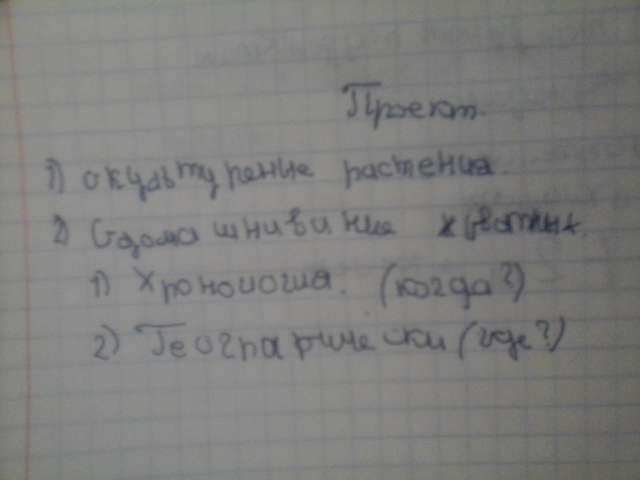 Проект.
1) окультурение растения.
2) Одомашнивание животных.
1) Хронологиа. (когда?)
2) Географически (где?)